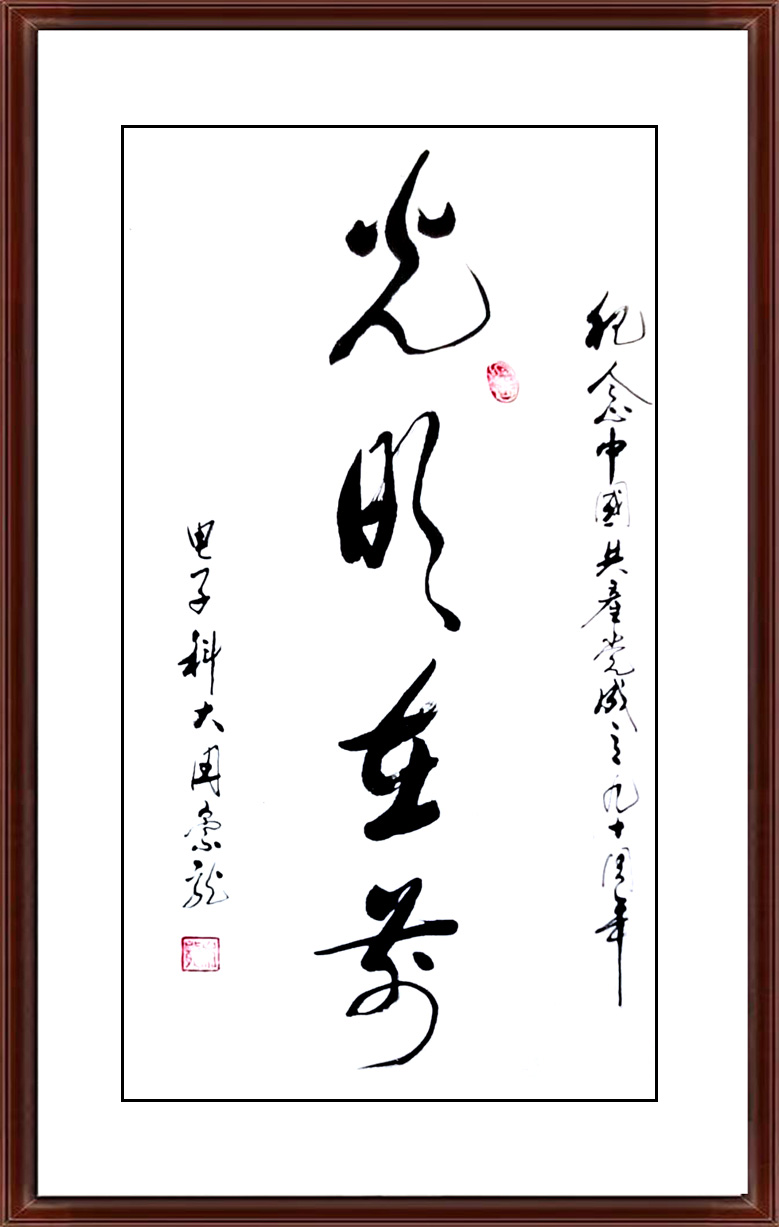 纪念中國共產党成立九十周年
光明在前
电子科大周崇龍